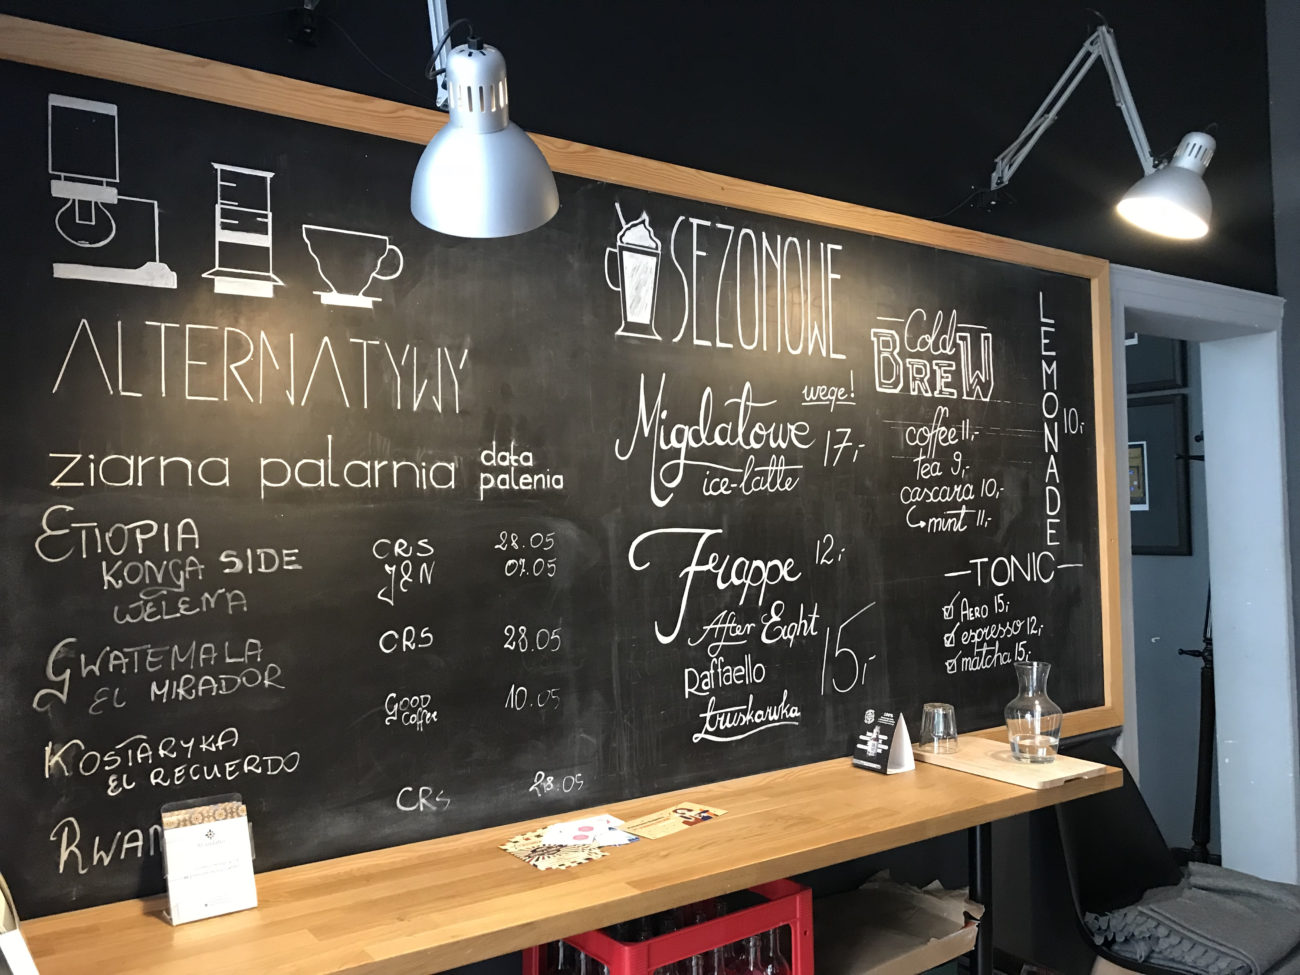 ALTERNATYWY
ziarna palarnia data palenia
ETIOPIA
KONGA SIDE CRS 28.05
WELENA J&N 07.05
GWATEMALA CRS 28.05
EL MIRADOR
GOOD Coffee 10.05
KOSTARYKA
EL RECUERDO
CRS 28.05
RWAN
SEZONOWE
Migdałowe wege! 17,-
ice-latte
Frappe 12,-
After Eight 15,-
Raffaello
truskawka
Cold
BREW
coffee 11,-
tea 9,-
cascara 10,-
↳ mint 11,-
LEMONADE 10,-
—TONIC—
☑ AERO 15,-
☑ espresso 12,-
☑ matcha 15,-